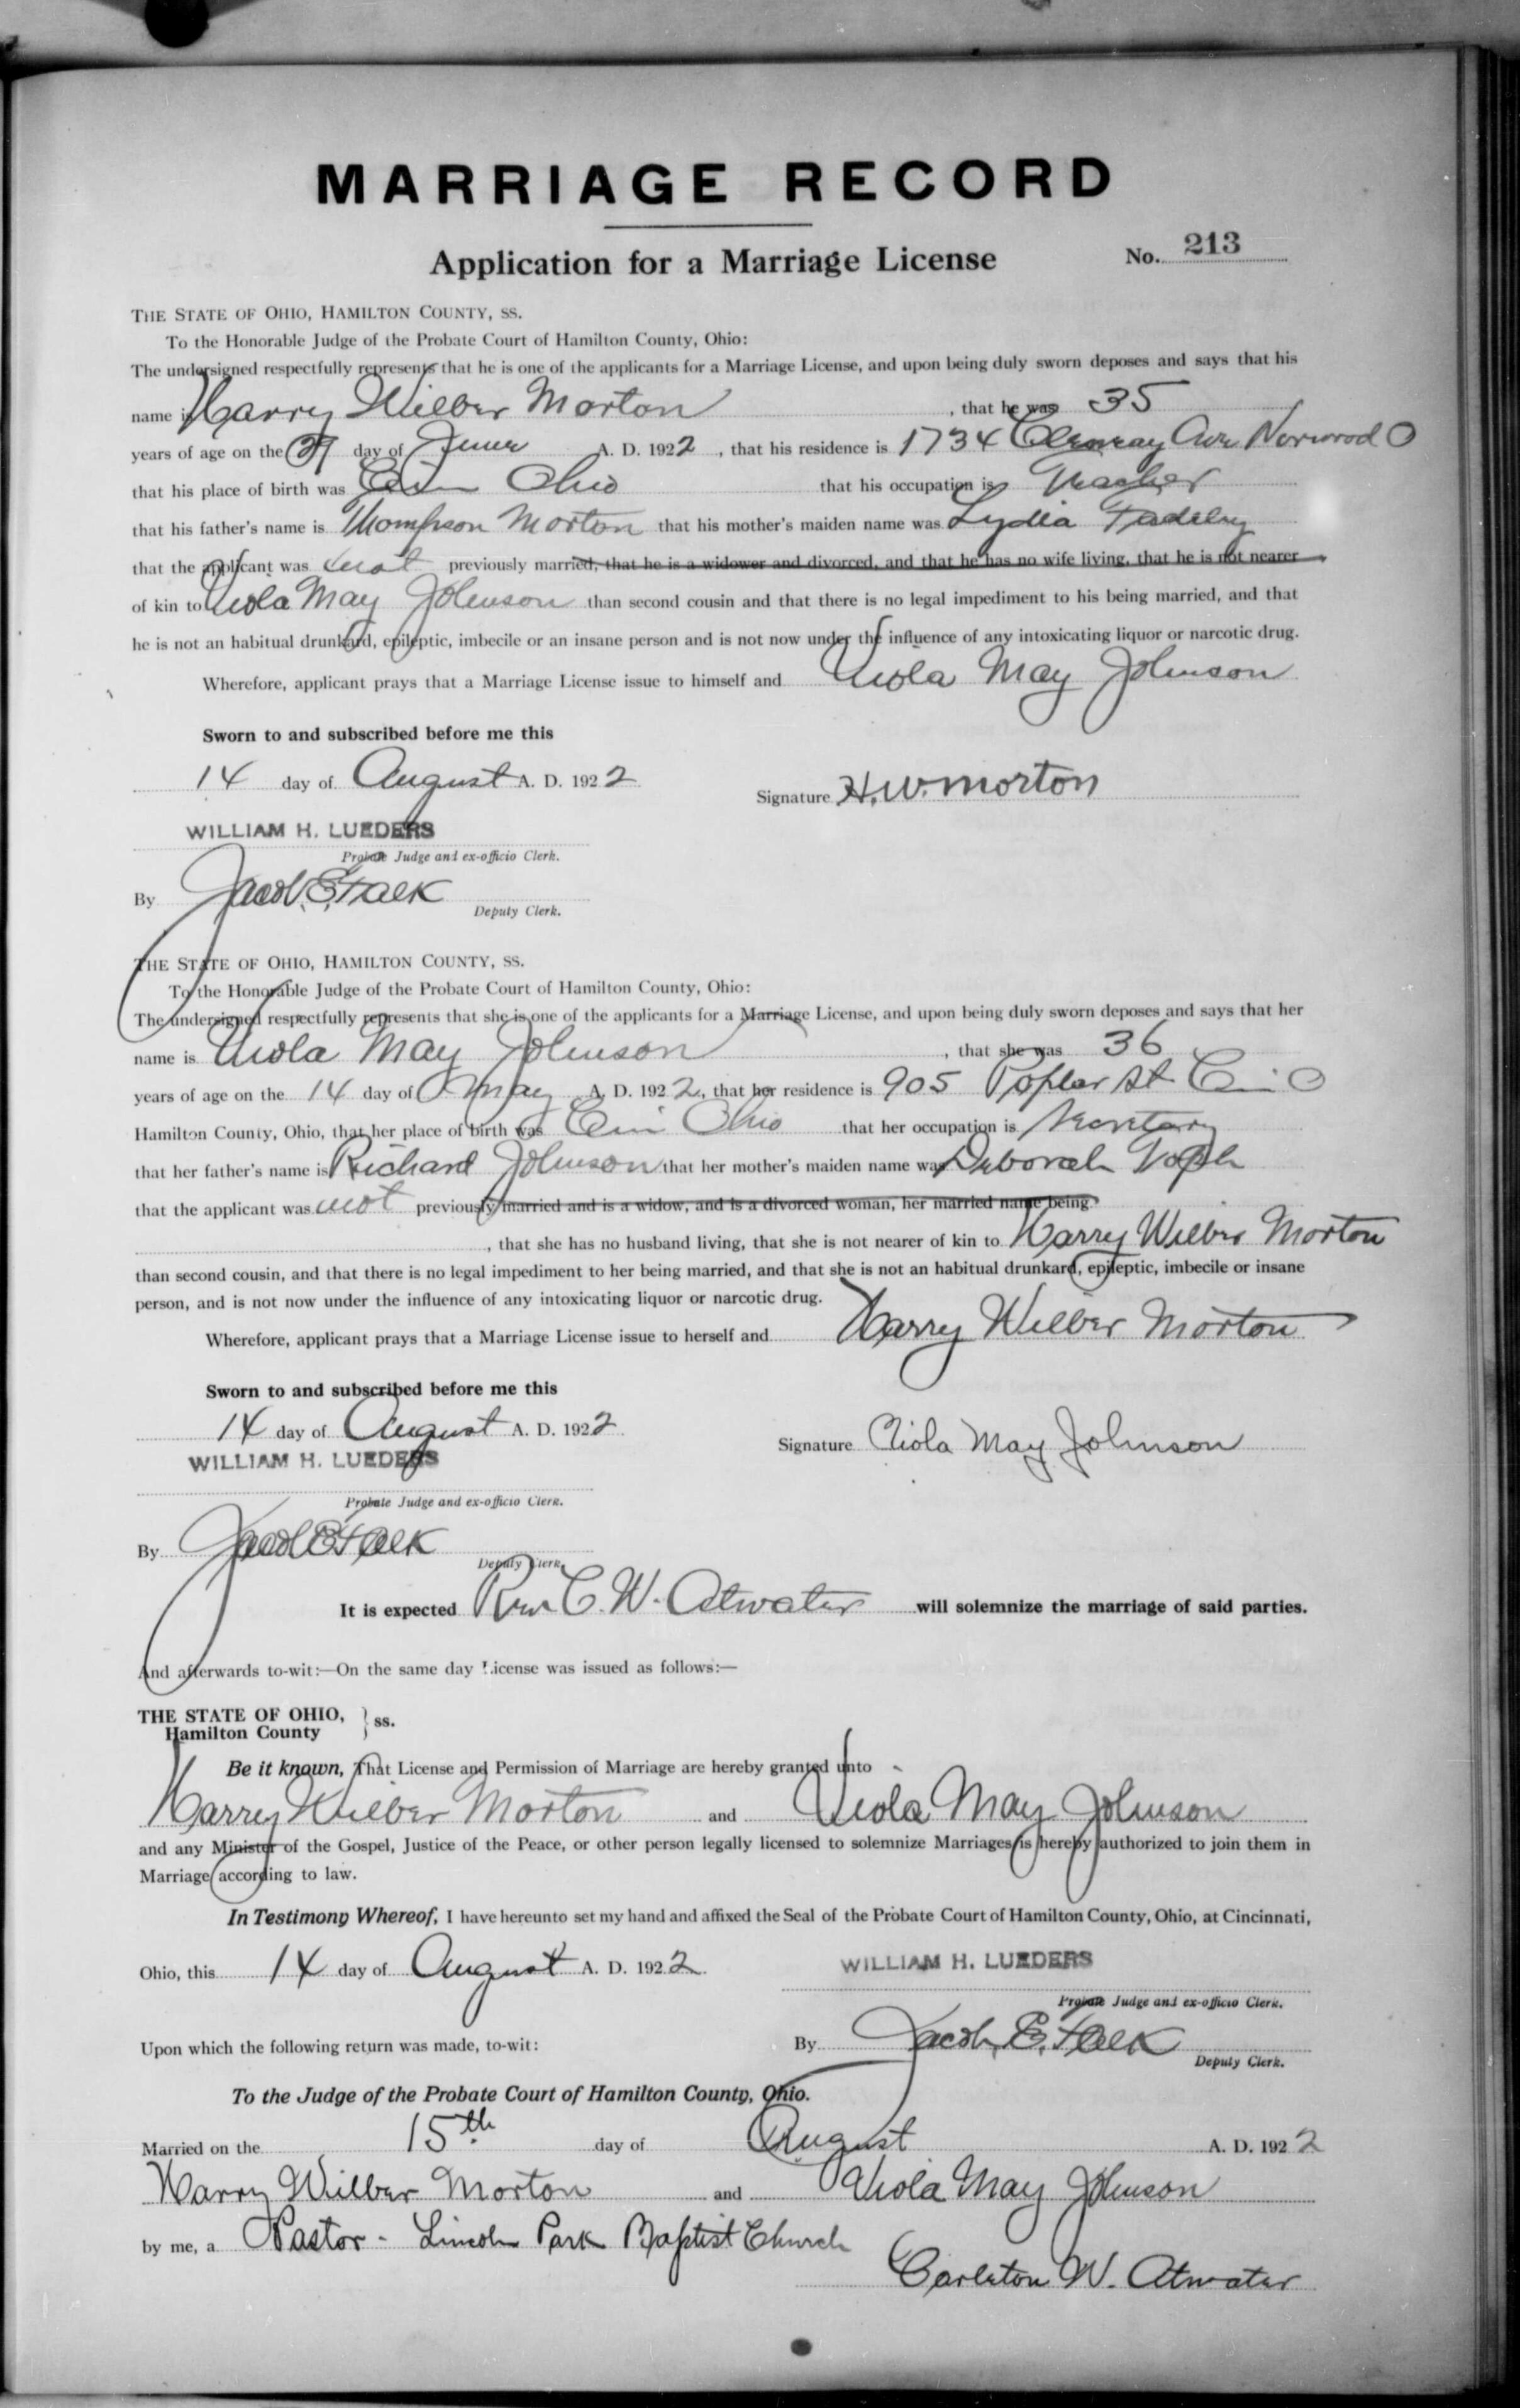 MARRIAGE RECORD
Application for a Marriage License
No. 213
THE STATE OF OHIO, HAMILTON COUNTY, SS.
To the Honorable Judge of the Probate Court of Hamilton County, Ohio:
The undersigned respectfully represents that he is one of the applicants for a Marriage License, and upon being duly sworn deposes and says that his
name is Harry Wilber Morton, that he was 35
years of age on the day of June A. D. 1922, that his residence is 1734 Ave Norwood O
that his place of birth was Cin Ohio that his occupation is Teacher
that his father's name is Thompson Morton that his mother's maiden name was Lydia
that the applicant was not previously married, that he is a widower and divorced, and that he has no wife living, that he is not nearer
of kin to Viola May Johnson than second cousin and that there is no legal impediment to his being married, and that
he is not an habitual drunkard, epileptic, imbecile or an insane person and is not now under the influence of any intoxicating liquor or narcotic drug.
Wherefore, applicant prays that a Marriage License issue to himself and Viola May Johnson
Sworn to and subscribed before me this
14 day of August A. D. 1922
Signature H. W. Morton
WILLIAM H. LUEDERS
Probate Judge and ex-officio Clerk.
By Jacob E. Falk
Deputy Clerk.
THE STATE OF OHIO, HAMILTON COUNTY, SS.
To the Honorable Judge of the Probate Court of Hamilton County, Ohio:
The undersigned respectfully represents that she is one of the applicants for a Marriage License, and upon being duly sworn deposes and says that her
name is Viola May Johnson, that she was 36
years of age on the 14 day of May A. D. 1922, that her residence is 905 Poplar St Cin O
Hamilton County, Ohio, that her place of birth was Cin Ohio that her occupation is Secretary
that her father's name is Richard Johnson that her mother's maiden name was Deborah
that the applicant was not previously married and is a widow, and is a divorced woman, her married name being
, that she has no husband living, that she is not nearer of kin to Harry Wilber Morton
than second cousin, and that there is no legal impediment to her being married, and that she is not an habitual drunkard, epileptic, imbecile or insane
person, and is not now under the influence of any intoxicating liquor or narcotic drug.
Wherefore, applicant prays that a Marriage License issue to herself and Harry Wilber Morton
Sworn to and subscribed before me this
14 day of August A. D. 1922
Signature Viola May Johnson
WILLIAM H. LUEDERS
Probate Judge and ex-officio Clerk.
By Jacob E Falk
Deputy Clerk.
It is expected Rev C. W. Atwater will solemnize the marriage of said parties.
And afterwards to-wit:—On the same day License was issued as follows:—
THE STATE OF OHIO,
Hamilton County } ss.
Be it known, That License and Permission of Marriage are hereby granted unto
Harry Wilber Morton and Viola May Johnson
and any Minister of the Gospel, Justice of the Peace, or other person legally licensed to solemnize Marriages is hereby authorized to join them in
Marriage according to law.
In Testimony Whereof, I have hereunto set my hand and affixed the Seal of the Probate Court of Hamilton County, Ohio, at Cincinnati,
Ohio, this 14 day of August A. D. 1922.
WILLIAM H. LUEDERS
Probate Judge and ex-officio Clerk.
Upon which the following return was made, to-wit:
By Jacob E. Falk
Deputy Clerk.
To the Judge of the Probate Court of Hamilton County, Ohio.
Married on the 15th day of August A. D. 1922
Harry Wilber Morton and Viola May Johnson
by me, a Pastor - Lincoln Park Baptist Church
Carleton W. Atwater